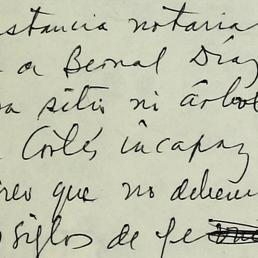 stancia notaria
a Bernal Díaz
sitio ni árbol
Cortés, incapaz
creo que no deben
siglos de fe